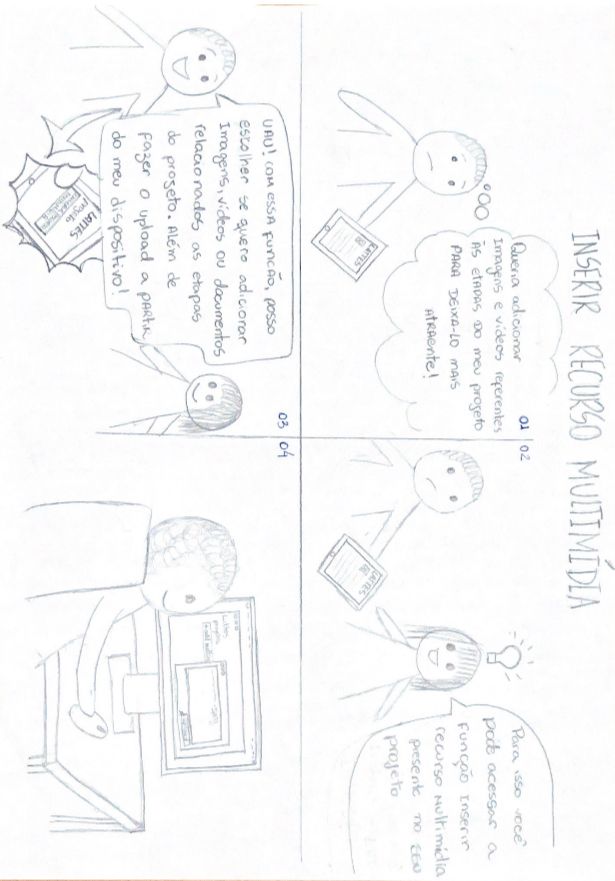 INSERIR RECURSO MULTIMÍDIA
01
Queria adicionar
Imagens e vídeos referentes
às etapas do meu projeto
PARA DEIXA-LO MAIS
ATRAENTE!
LATTES
02
Para isso você
pode acessar a
função Inserir
recurso Multimídia
presente no seu
projeto
LATTES
03
UAU! COM ESSA FUNÇÃO, posso
escolher se quero adicionar
Imagens, vídeos ou documentos
relacionados as etapas
do projeto. Além de
fazer o upload a PARTIR
do meu dispositivo!
LATTES
projeto
04
Lattes
projeto